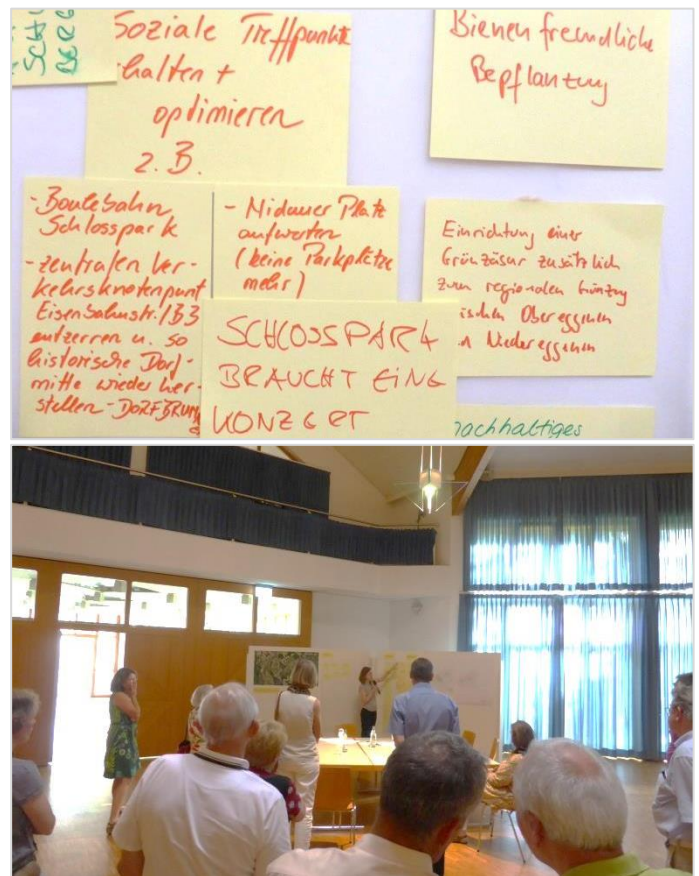 Soziale Treffpunkte
halten +
optimieren
z.B.
Bienenfreundliche
Bepflanzung
- Boulebahn
Schlosspark
- zentralen Ver-
kehrsknotenpunkt
Eisenbahnstr./B3
entzerren u. so
historische Dorf-
mitte wieder her-
stellen - DORFBRUNN
- Nidauer Platz
aufwerten
(keine Parkplätze
mehr)
SCHLOSSPARK
BRAUCHT EINE
KONZEPT
Einrichtung einer
Grünzäsur zusätzlich
zum regionalen Grünzug
ischen Obereggenen
Niedereggenen
nachhaltiges